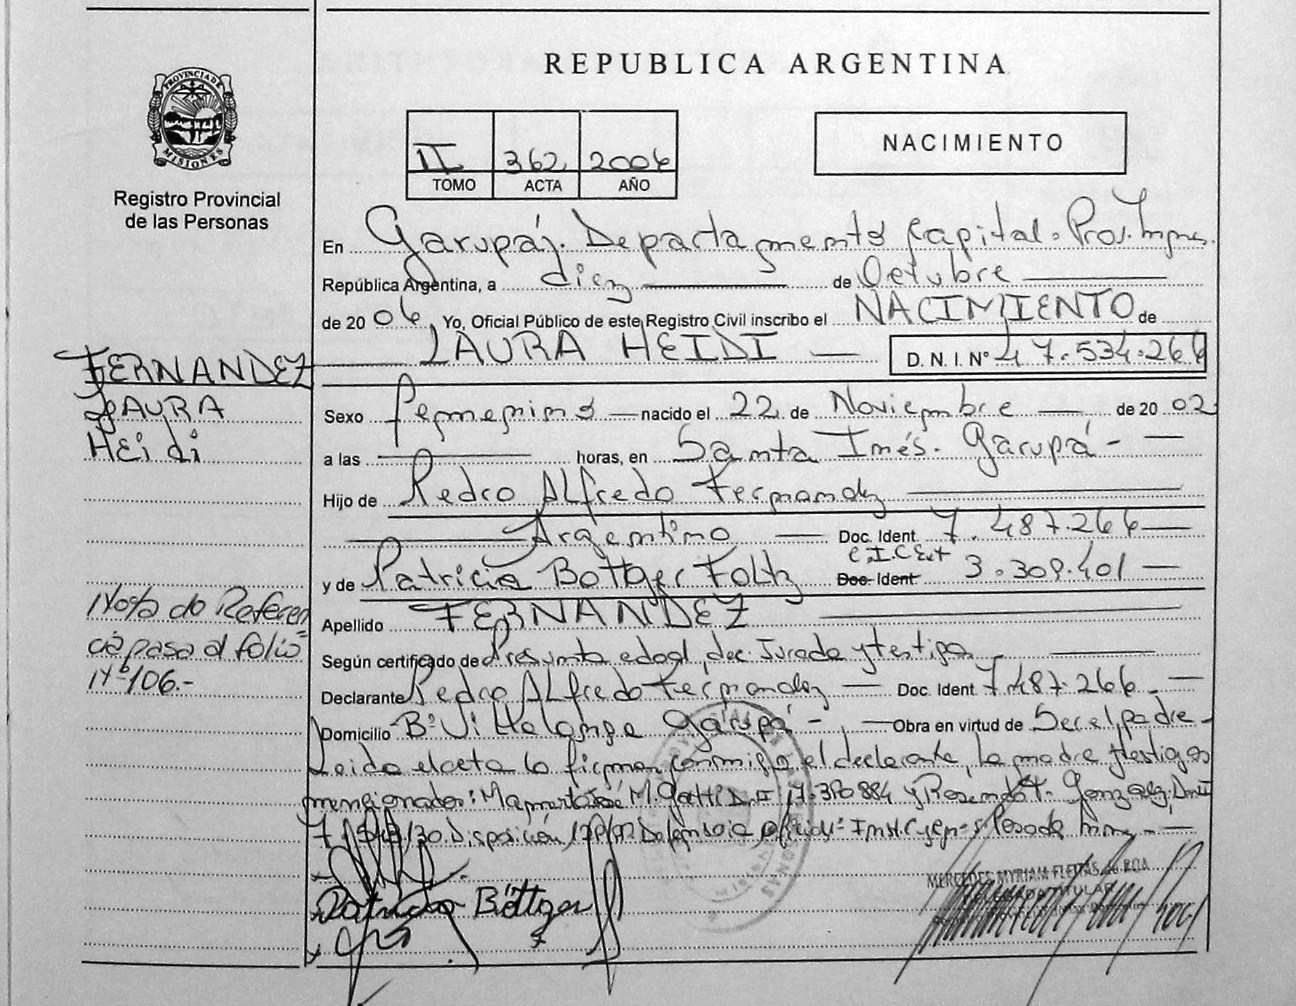 REPUBLICA ARGENTINA
PROVINCIA DE MISIONES
Registro Provincial
de las Personas
II 362 2006
TOMO ACTA AÑO
NACIMIENTO
En Garupá, Departamento Capital. Prov.
República Argentina, a diez de Octubre
de 2006, Yo, Oficial Público de este Registro Civil inscribo el NACIMIENTO de
LAURA HEIDI D. N. I. Nº 47.534.266
FERNANDEZ
LAURA
Heidi
Sexo femenino nacido el 22 de Noviembre de 2002
a las horas, en Santa Inés. Garupá
Hijo de Pedro Alfredo Fernandez
Argentino Doc. Ident. 7.487.266
y de Patricia Bottger Foltz Doc. Ident C.I.C.Ext 3.309.401
Apellido FERNANDEZ
Nota de Referen
cia pasa al folio
Nº 106.-
Según certificado de Presunta edad, dec. Jurada y testigo
Declarante Pedro Alfredo Fernandez Doc. Ident 7.487.266
Domicilio Bº Garupá Obra en virtud de Ser el padre
Leida el acta la firman conmigo el declarante, la madre y testigos
mencionados: José M. Gatti 17.370.884 y Gonzalez
Disposición
Patricia Böttger
MERCEDES MYRIAM FLEITAS de ROA
TITULAR